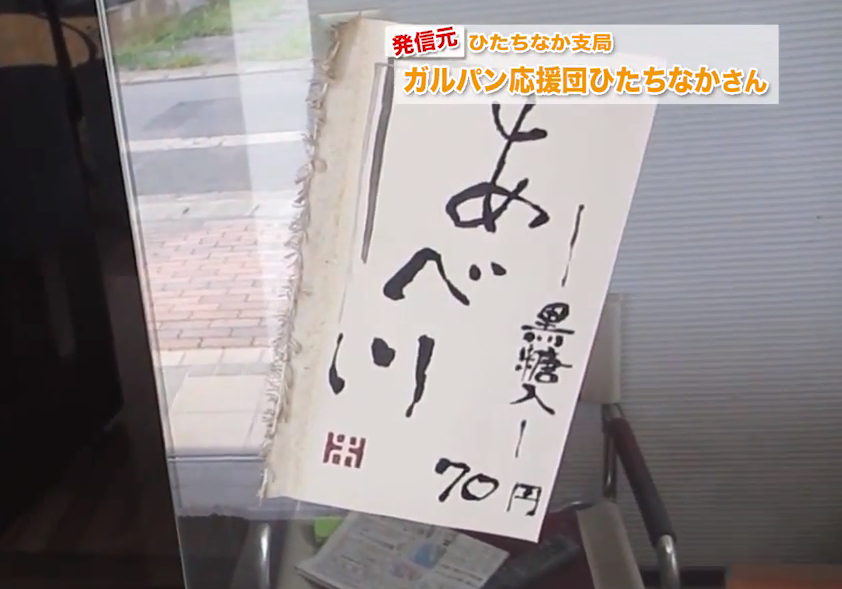 発信元 ひたちなか支局
ガルパン応援団ひたちなかさん
あべ川
―黒糖入―
70円